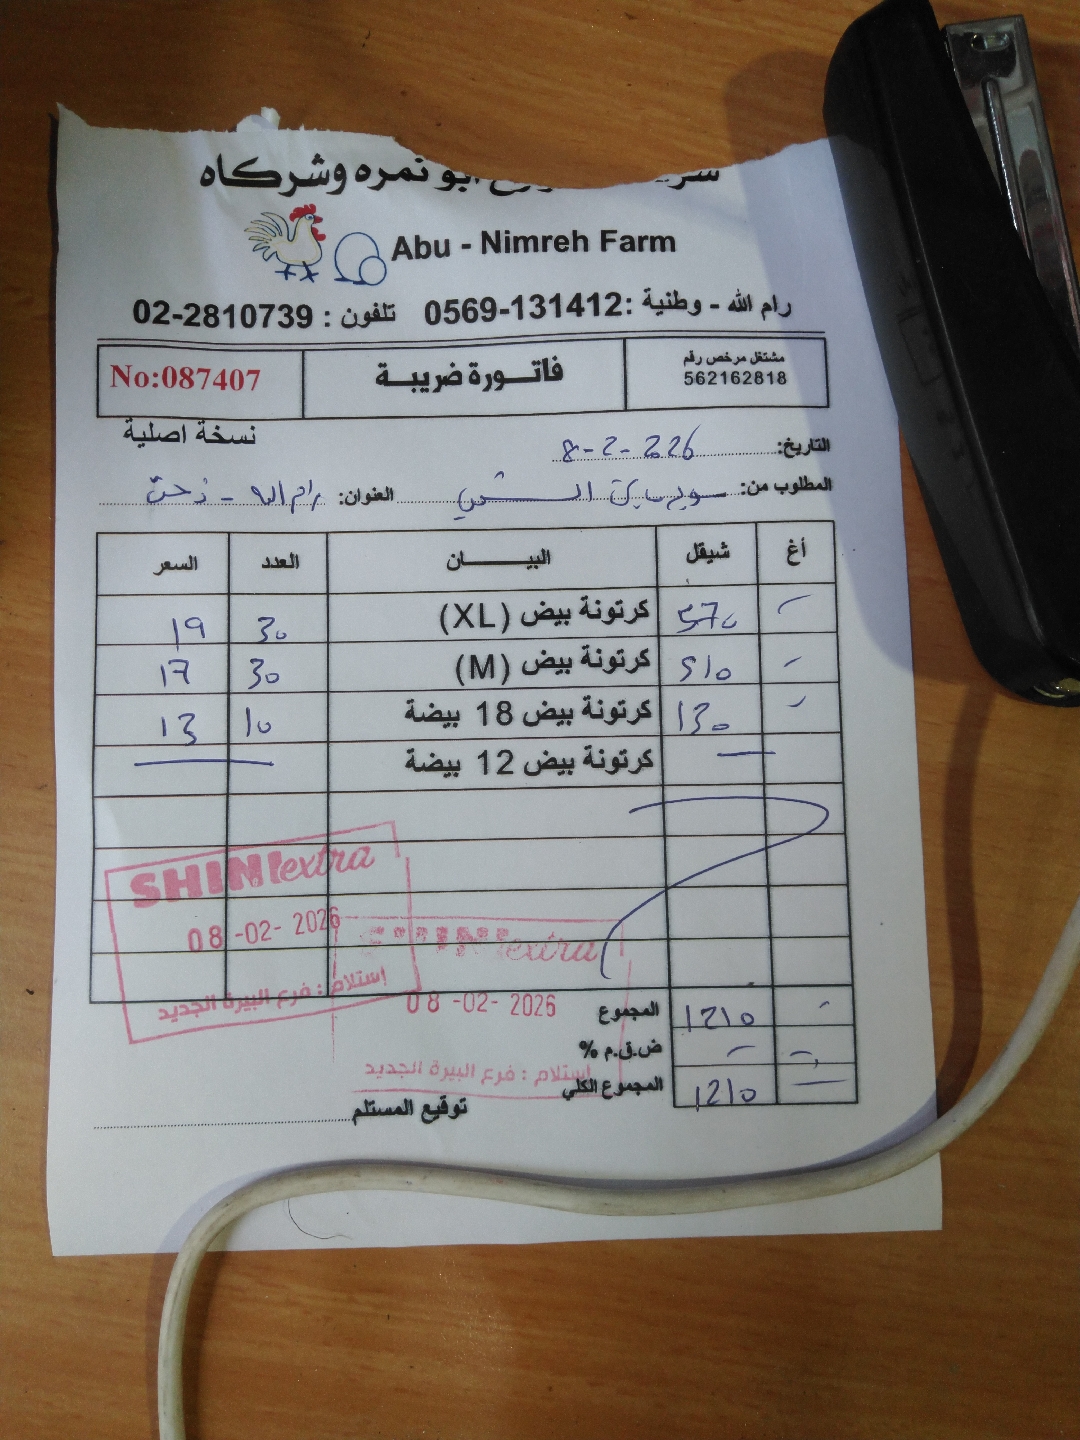 وشركاه ابو نمره
Abu - Nimreh Farm
رام الله - وطنية :0569-131412 تلفون : 02-2810739
مشتغل مرخص رقم
562162818
فاتـــورة ضريبــة
No:087407
نسخة اصلية
التاريخ: 8-2-2026
المطلوب من: العنوان: رام الله -
أغ شيقل البيـــــان العدد السعر
570 كرتونة بيض (XL) 30 19
510 كرتونة بيض (M) 30 17
130 كرتونة بيض 18 بيضة 10 13
كرتونة بيض 12 بيضة
SHINI extra
08 -02- 2026
إستلام : فرع البيرة الجديد
SHINI extra
08 -02- 2026
إستلام : فرع البيرة الجديد
المجموع 1210
ض.ق.م %
المجموع الكلي 1210
توقيع المستلم